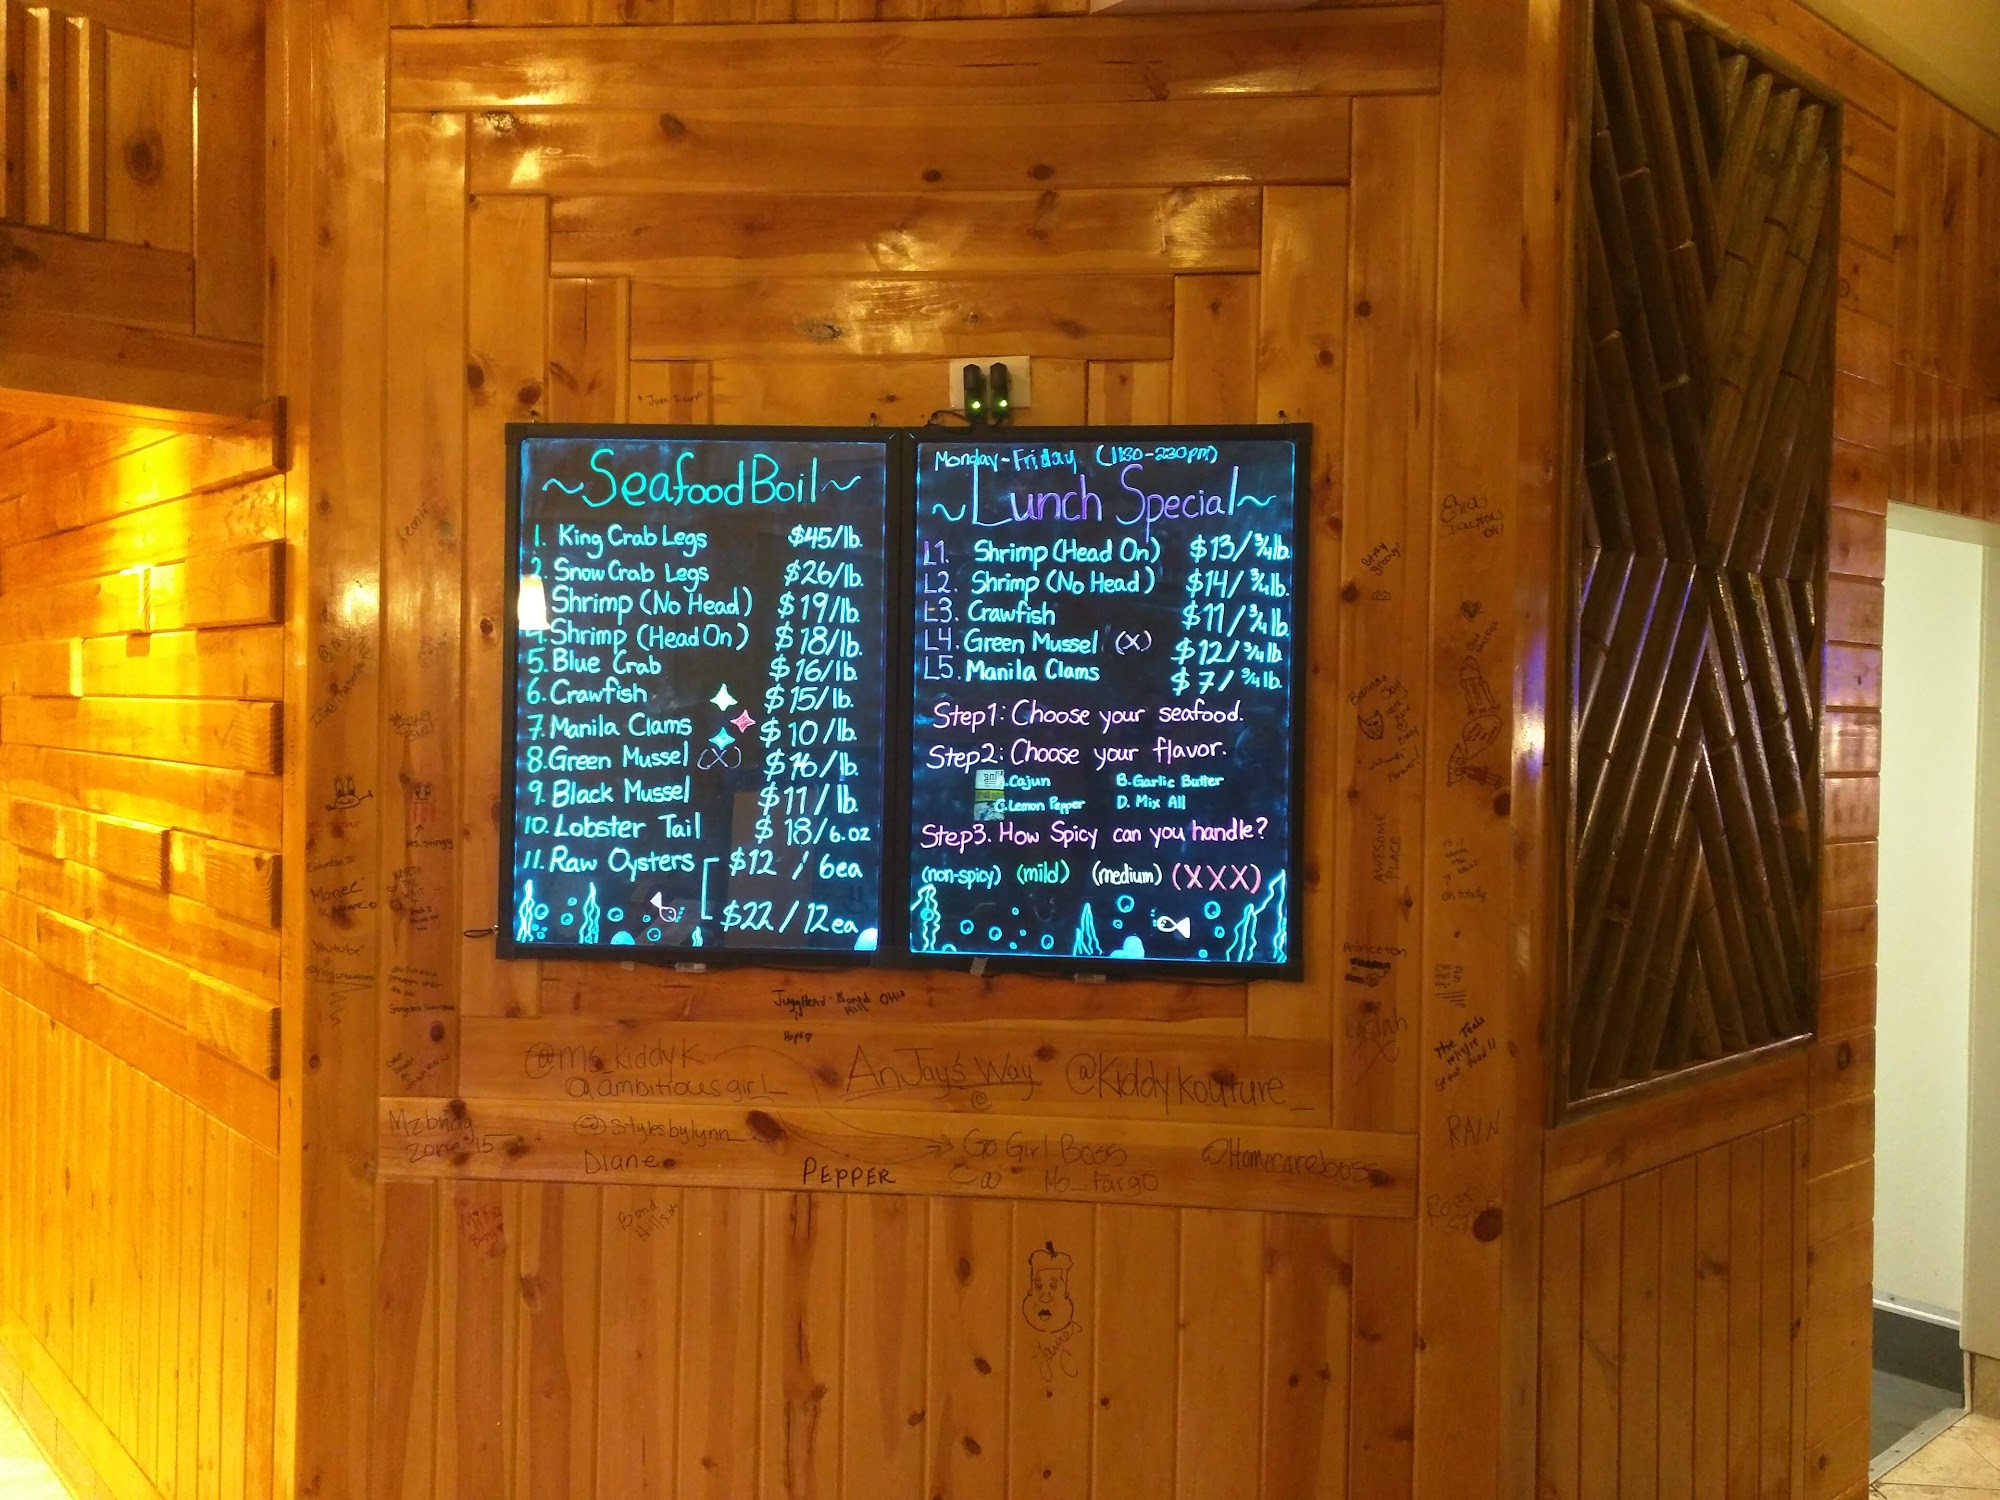 ~Seafood Boil~
1. King Crab Legs $45/lb.
2. Snow Crab Legs $26/lb.
Shrimp (No Head) $19/lb.
4. Shrimp (Head On) $18/lb.
5. Blue Crab $16/lb.
6. Crawfish $15/lb.
7. Manila Clams $10/lb.
8. Green Mussel (X) $16/lb.
9. Black Mussel $11/lb.
10. Lobster Tail $18/6.oz
11. Raw Oysters $12/6ea
$22/12ea
Monday-Friday (1130-230pm)
~Lunch Special~
L1. Shrimp (Head On) $13/¾lb.
L2. Shrimp (No Head) $14/¾lb.
L3. Crawfish $11/¾lb.
L4. Green Mussel (X) $12/¾lb.
L5. Manila Clams $7/¾lb.
Step1: Choose your seafood.
Step2: Choose your flavor.
A.Cajun B.Garlic Butter
C.Lemon Pepper D. Mix All
Step3. How Spicy can you handle?
(non-spicy) (mild) (medium) (XXX)
Bond Hill Ohio
@ms_kiddyk
@ambitiousgirl_
AnJay's Way
@
@Kiddykouture_
Mzbhdg
Zone 15
@stylesbylynn_
Diane
PEPPER
Go Girl Boss
Mo_Fargo
@Homecareboss
AWESOME
PLACE
Princeton
RAIN
Bond
Hills
James
C